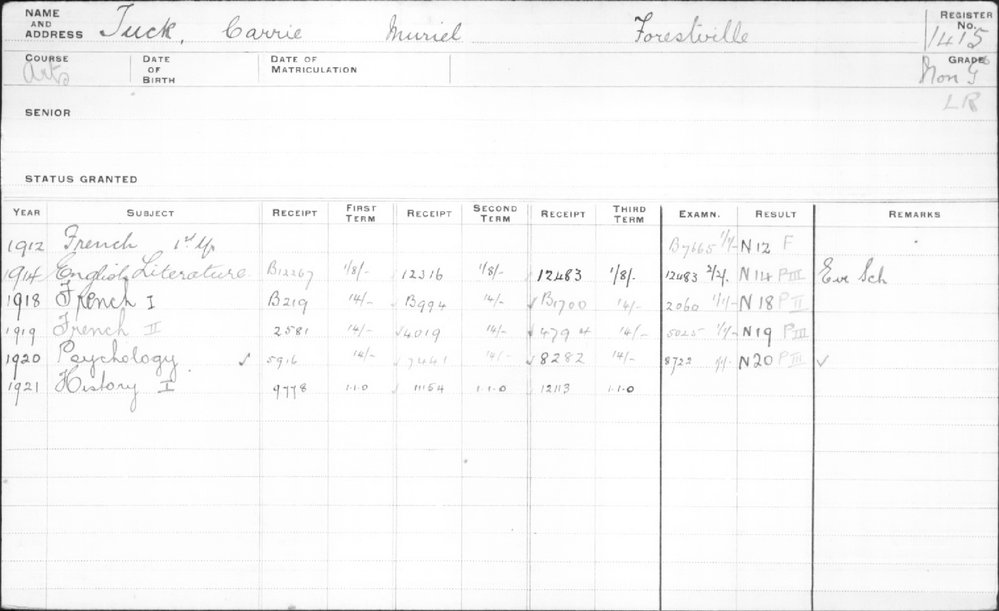 NAME AND ADDRESS Tuck, Carrie Muriel Forestville REGISTER No. 1415
COURSE Arts DATE OF BIRTH DATE OF MATRICULATION GRADE Non G
LR
SENIOR
STATUS GRANTED
YEAR SUBJECT RECEIPT FIRST TERM RECEIPT SECOND TERM RECEIPT THIRD TERM EXAMN. RESULT REMARKS
1912 French 1st Yr B7665 1/1/- N12 F
1914 English Literature B12267 1/8/- 12316 1/8/- 12483 1/8/- 12483 2/2/. N14 P III Eve Sch
1918 French I B219 14/- B994 14/- B1700 14/- 2060 1/1/- N18 P II
1919 French II 2581 14/- 4019 14/- 4794 14/- 5025 1/1/- N19 P III
1920 Psychology ✓ 5916 14/- 7441 14/- 8282 14/- 8722 1/1/- N20 P III ✓
1921 History I 9778 1.1.0 11154 1.1.0 12113 1.1.0